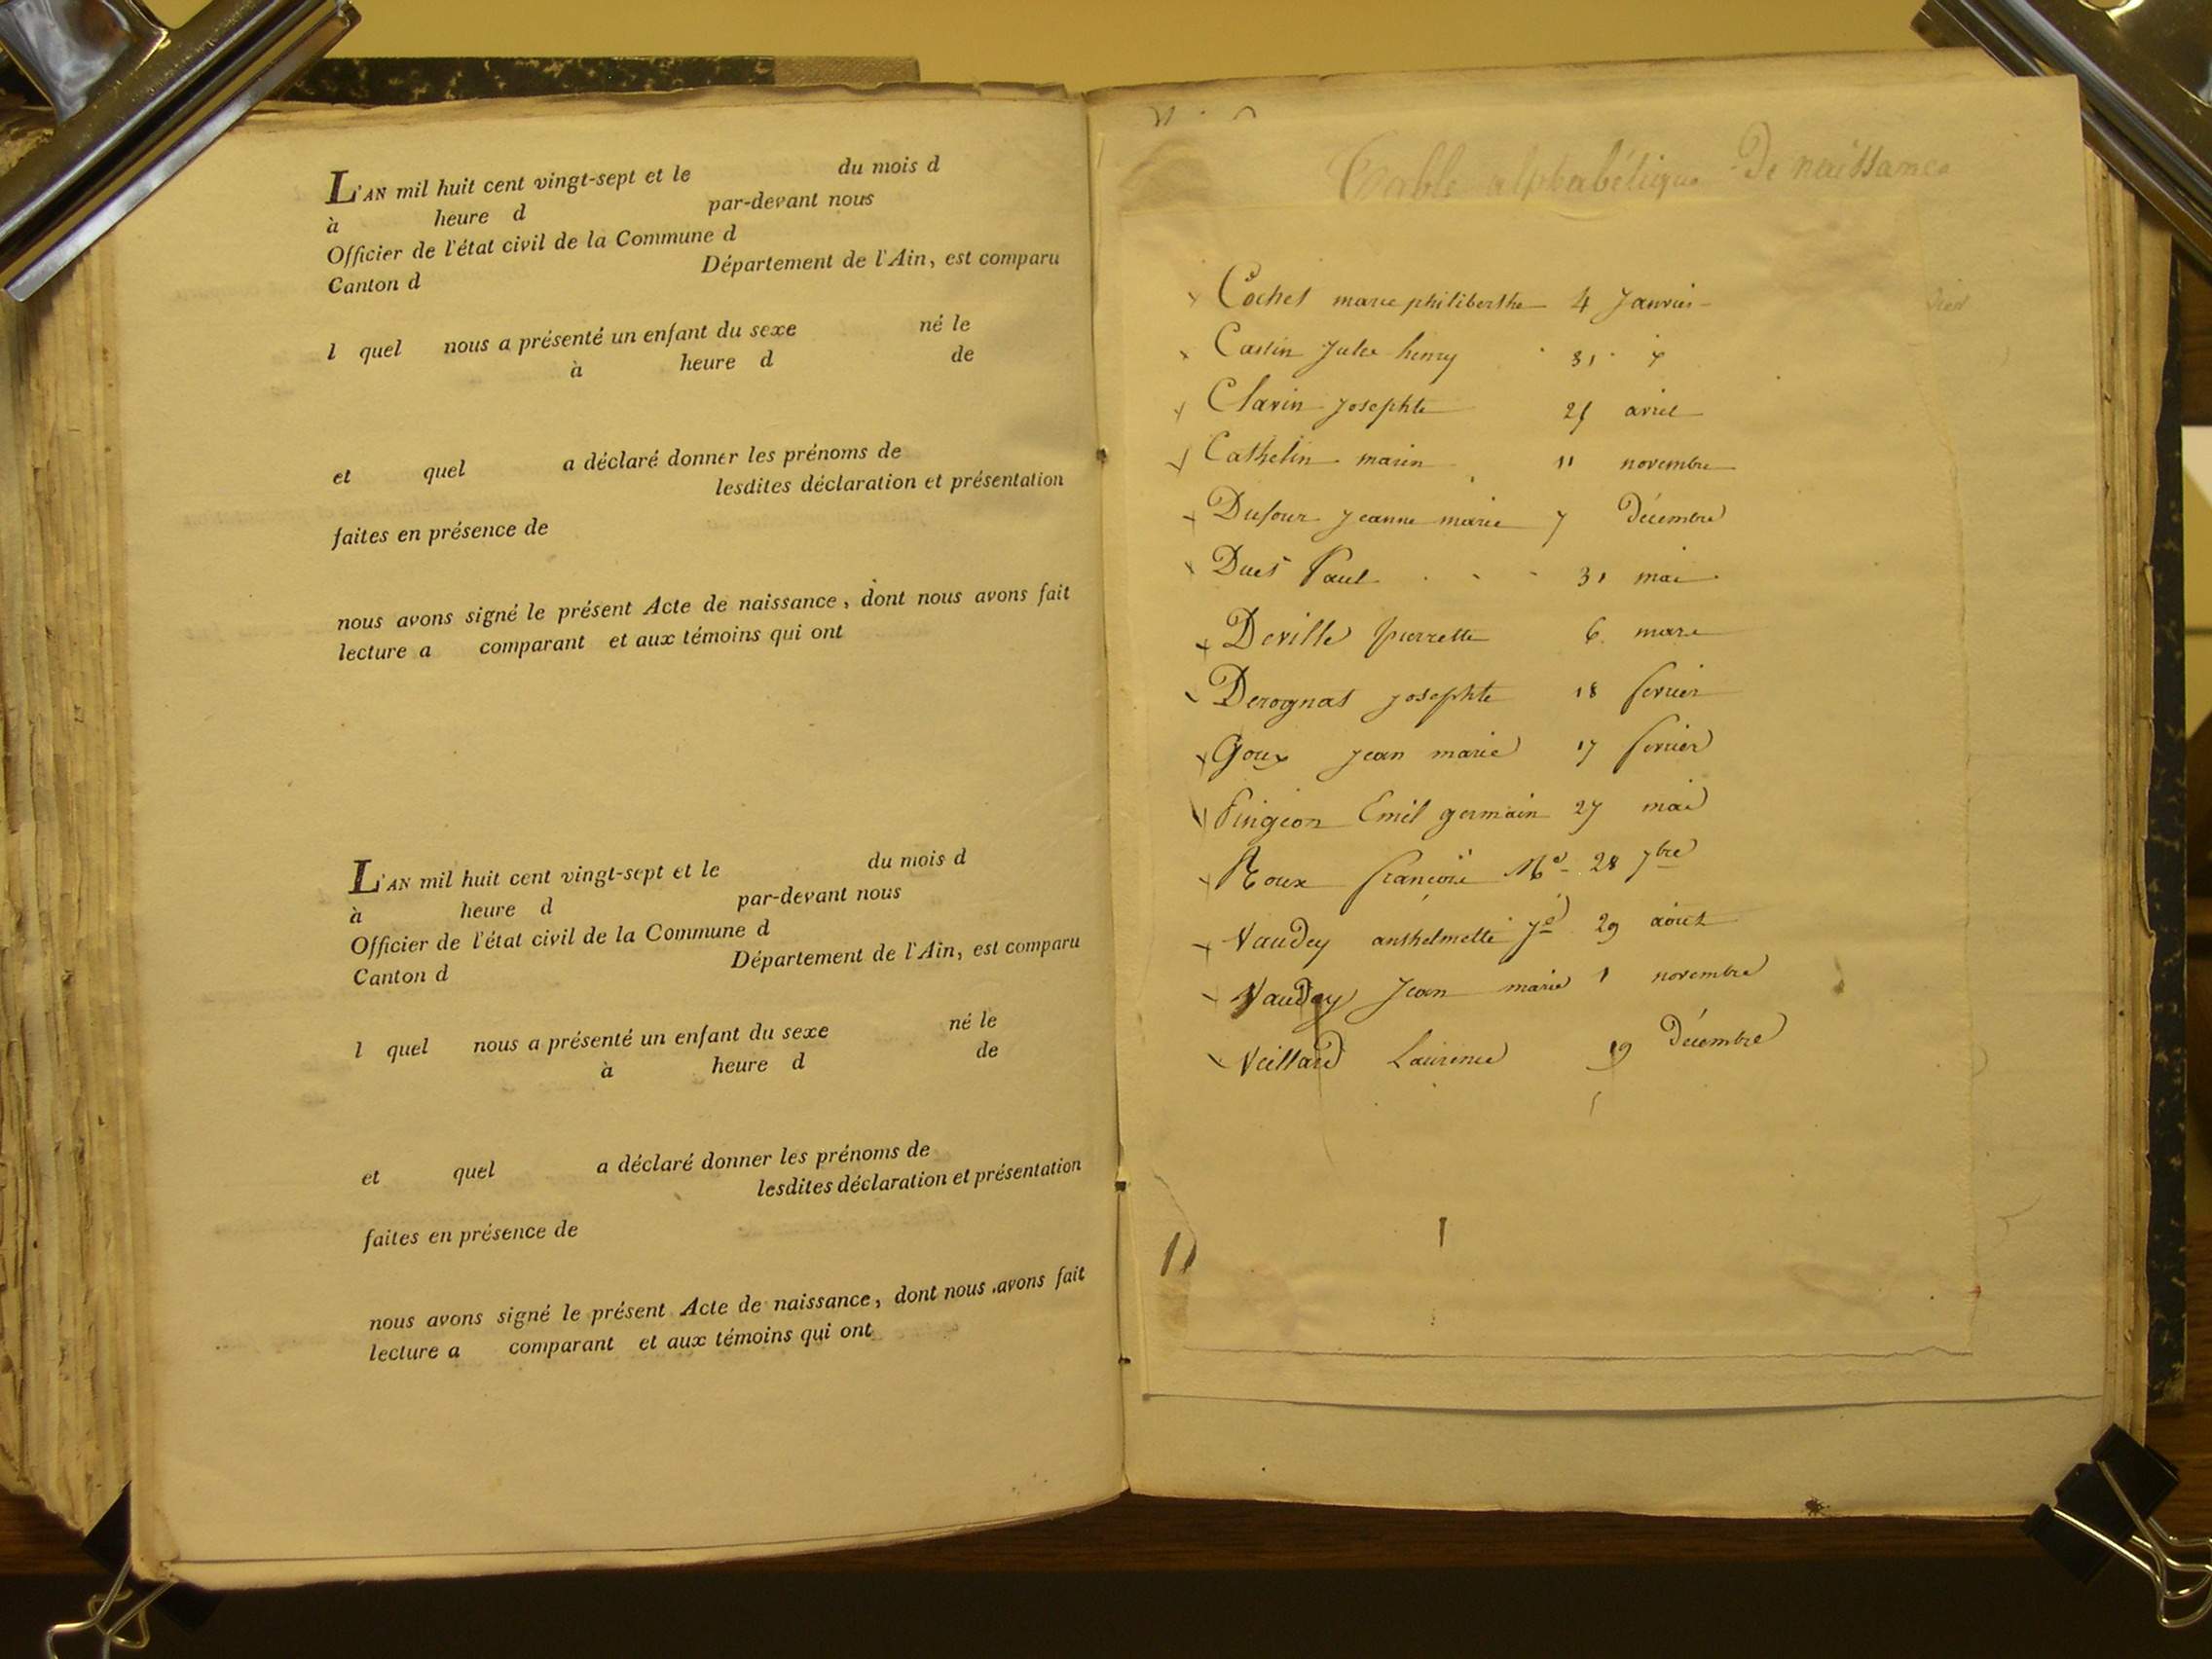 L'AN mil huit cent vingt-sept et le du mois d
à heure d par-devant nous
Officier de l'état civil de la Commune d
Canton d Département de l'Ain, est comparu
l quel nous a présenté un enfant du sexe né le
à heure d de
et quel a déclaré donner les prénoms de
lesdites déclaration et présentation
faites en présence de
nous avons signé le présent Acte de naissance, dont nous avons fait
lecture a comparant et aux témoins qui ont
L'AN mil huit cent vingt-sept et le du mois d
à heure d par-devant nous
Officier de l'état civil de la Commune d
Canton d Département de l'Ain, est comparu
l quel nous a présenté un enfant du sexe né le
à heure d de
et quel a déclaré donner les prénoms de
lesdites déclaration et présentation
faites en présence de
nous avons signé le présent Acte de naissance, dont nous avons fait
lecture a comparant et aux témoins qui ont
Table alphabétique De naissance
Cochet marie philiberthe 4 Janvier
Castin Jules henry 31
Clavin Josephte avril
Cathelin marin 11 novembre
Dufour Jeanne marie 7 Décembre
Paul 31 mai
Deville pierrette 6 mars
Derognat Josephte 18 fevrier
Goux Jean marie 17 fevrier
Pingeon Emil germain 27 mai
Roux françois Me 28 7bre
Vaudey anthelmette 29 aout
Vaudey Jean marie 1 novembre
Veillard Laurence 19 Décembre